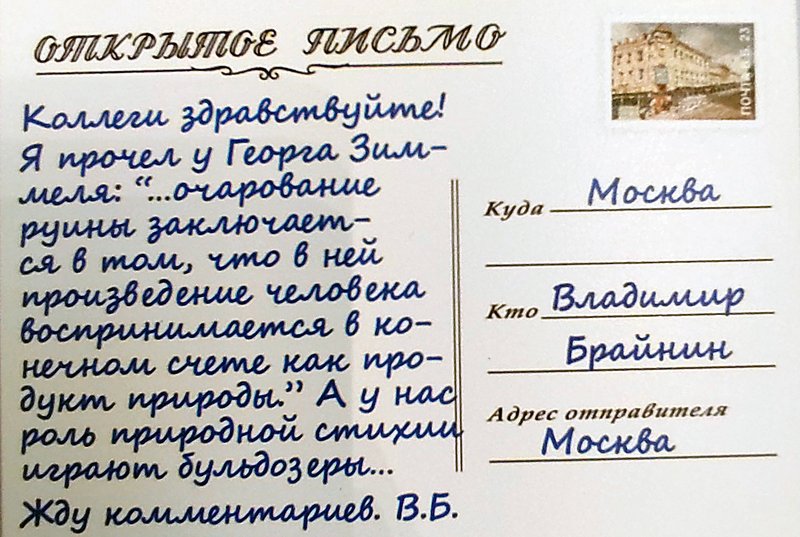 ОТКРЫТОЕ ПИСЬМО
Коллеги здравствуйте!
Я прочел у Георга Зим-
меля: “...очарование
руины заключает-
ся в том, что в ней
произведение человека
воспринимается в ко-
нечном счете как про-
дукт природы.” А у нас
роль природной стихии
играют бульдозеры...
Жду комментариев. В.Б.
ПОЧТА В.Б. 23
Куда Москва
Кто Владимир
Брайнин
Адрес отправителя
Москва